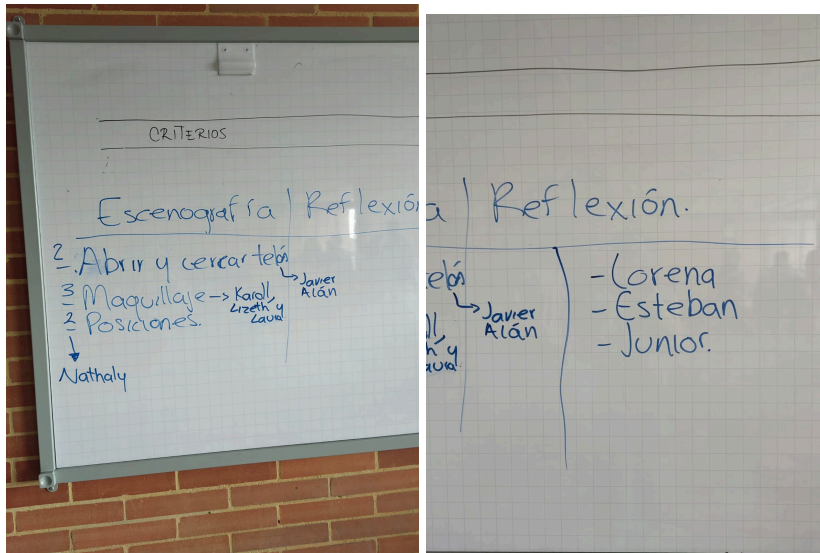 CRITERIOS
Escenografía | Reflexión
2. Abrir y cercar telón
→ Javier
Alán
3 Maquillaje → Karoll,
Lizeth y
Laura
2 Posiciones.
Nathaly
a | Reflexión.
elón
→ Javier
Alán
ll,
h y
aura
- Lorena
- Esteban
- Junior.